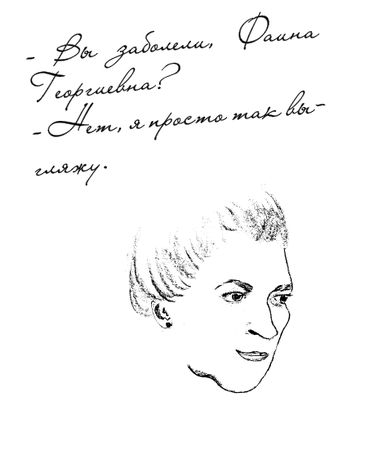 - Вы заболели, Фаина
Георгиевна?
- Нет, я просто так вы-
гляжу.